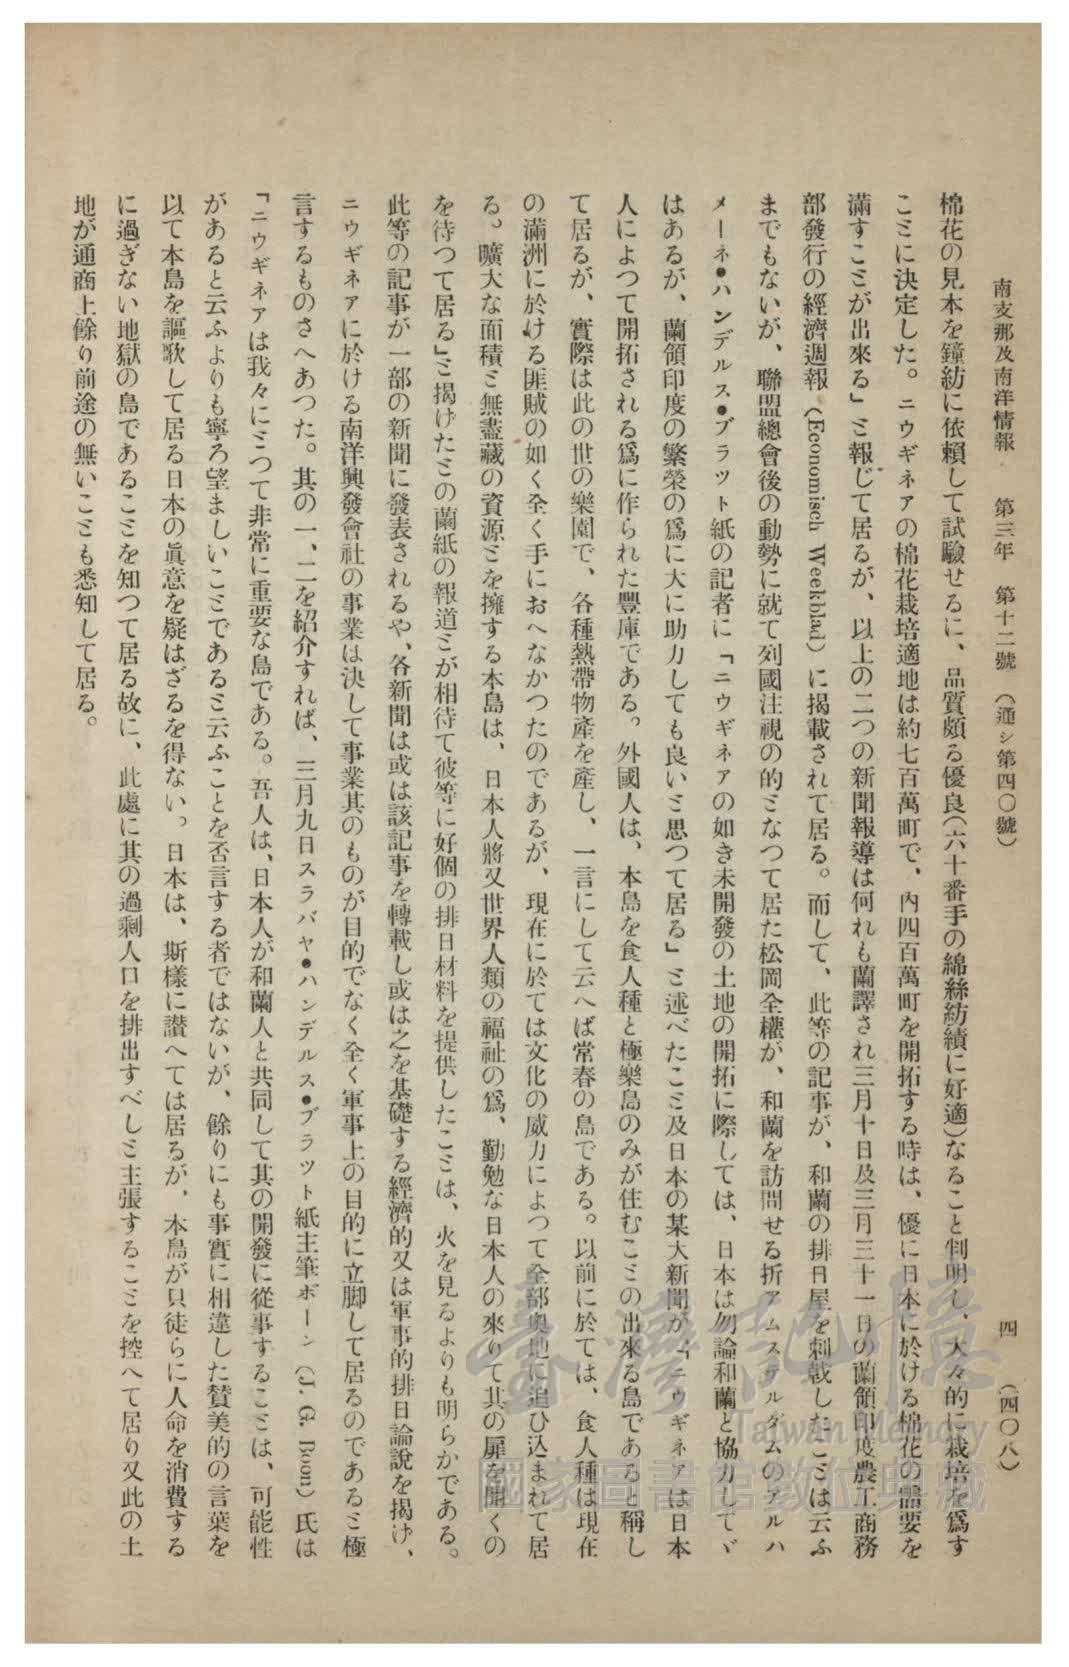 南支那及南洋情報　第三年　第十二號　（通シ第四〇號）　四　（四〇八）
棉花の見本を鐘紡に依賴して試驗せるに、品質頗る優良（六十番手の綿絲紡績に好適）なること判明し、大々的に栽培を爲す
ことに決定した。ニウギネアの棉花栽培適地は約七百萬町で、內四百萬町を開拓する時は、優に日本に於ける棉花の需要を
滿すことが出來る」と報じて居るが、以上の二つの新聞報導は何れも蘭譯され三月十日及三月三十一日の蘭領印度農工商務
部發行の經濟週報（Economisch Weekblad）に揭載されて居る。而して、此等の記事が、和蘭の排日屋を刺戟したことは云ふ
までもないが、聯盟總會後の動勢に就て列國注視の的となつて居た松岡全權が、和蘭を訪問せる折アムステルダムのアルハ
メーネ●ハンデルス●ブラット紙の記者に「ニウギネアの如き未開發の土地の開拓に際しては、日本は勿論和蘭と協力してゞ
はあるが、蘭領印度の繁榮の爲に大に助力しても良いと思つて居る」と述べたこと及日本の某大新聞が「ニウギネアは日本
人によつて開拓される爲に作られた豐庫である。外國人は、本島を食人種と極樂島のみが住むことの出來る島であると稱し
て居るが、實際は此の世の樂園で、各種熱帶物產を產し、一言にして云へば常春の島である。以前に於ては、食人種は現在
の滿洲に於ける匪賊の如く全く手におへなかつたのであるが、現在に於ては文化の威力によつて全部奧地に追ひ込まれて居
る。曠大な面積と無盡藏の資源とを擁する本島は、日本人將又世界人類の福祉の爲、勤勉な日本人の來りて其の扉を開くの
を待つて居る」と揭げたとの蘭紙の報道とが相待て彼等に好個の排日材料を提供したことは、火を見るよりも明らかである。
此等の記事が一部の新聞に發表されるや、各新聞は或は該記事を轉載し或は之を基礎する經濟的又は軍事的排日論說を揭げ、
ニウギネアに於ける南洋興發會社の事業は決して事業其のものが目的でなく全く軍事上の目的に立脚して居るのであると極
言するものさへあつた。其の一、二を紹介すれば、三月九日スラバヤ●ハンデルス●ブラット紙主筆ボーン（J. G. Boon）氏は
「ニウギネアは我々にとつて非常に重要な島である。吾人は、日本人が和蘭人と共同して其の開發に從事することは、可能性
があると云ふよりも寧ろ望ましいことであると云ふことを否言する者ではないが、餘りにも事實に相違した賛美的の言葉を
以て本島を謳歌して居る日本の眞意を疑はざるを得ない。日本は、斯樣に讃へては居るが、本島が只徒らに人命を消費する
に過ぎない地獄の島であることを知つて居る故に、此處に其の過剩人口を排出すべしと主張することを控へて居り又此の土
地が通商上餘り前途の無いことも悉知して居る。
臺灣記憶
Taiwan Memory
國家圖書館數位典藏